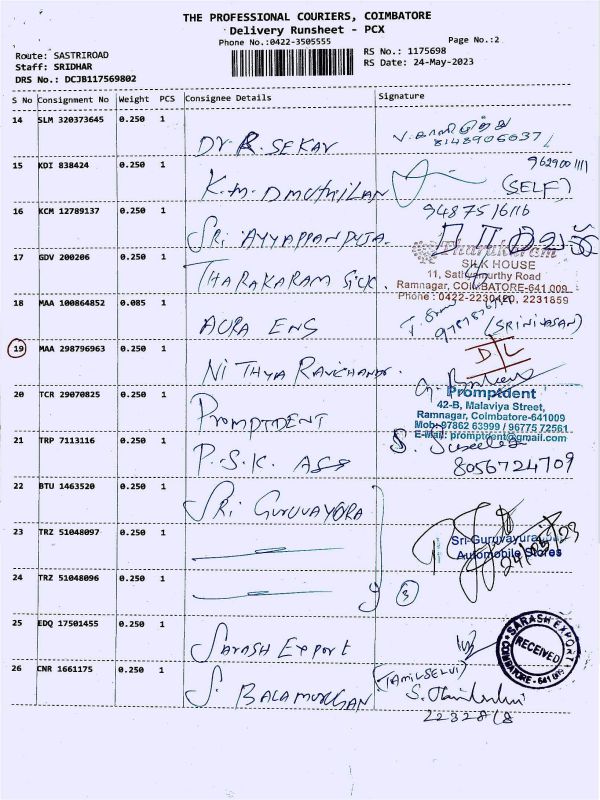 THE PROFESSIONAL COURIERS, COIMBATORE
Delivery Runsheet - PCX
Phone No.:0422-3505555 Page No.:2
Route: SASTRIROAD RS No.: 1175698
Staff: SRIDHAR RS Date: 24-May-2023
DRS No.: DCJB117569802
S No Consignment No Weight PCS Consignee Details Signature
14 SLM 320373645 0.250 1 DY. R. SEKAR
8148906037
15 KDI 838424 0.250 1 K.M.
9629001111
(SELF)
16 KCM 12789137 0.250 1 SRI AYYAPPAN PUJA.
9487516116
17 GDV 200206 0.250 1 THARAKARAM SICK.
Tharakaram
SILK HOUSE
11, Sathyamurthy Road
Ramnagar, COIMBATORE-641 009
Phone : 0422-2230460, 2231659
18 MAA 100864852 0.085 1 AURA ENS
(SRINIVASAN)
19 MAA 298796963 0.250 1 NITHYA RAVICHANDR.
D/L
20 TCR 29070825 0.250 1 PROMPTDENT
Promptdent
42-B, Malaviya Street,
Ramnagar, Coimbatore-641009
Mob: 97862 63999 / 96775 72561
E-Mail: promptdent@gmail.com
21 TRP 7113116 0.250 1 P.S.K. ASS
S. Suseela
8056724709
22 BTU 1463520 0.250 1 SRI GURUVAYURA
23 TRZ 51048097 0.250 1
Sri Guruvayurappa
Automobile Stores
24/05/23
24 TRZ 51048096 0.250 1
3
25 EDQ 17501455 0.250 1 SARASH EXPORT
SARASH EXPORT
RECEIVED
COIMBATORE - 641 009
26 CNR 1661175 0.250 1 S. BALAMURUGAN
(TAMILSELVI)